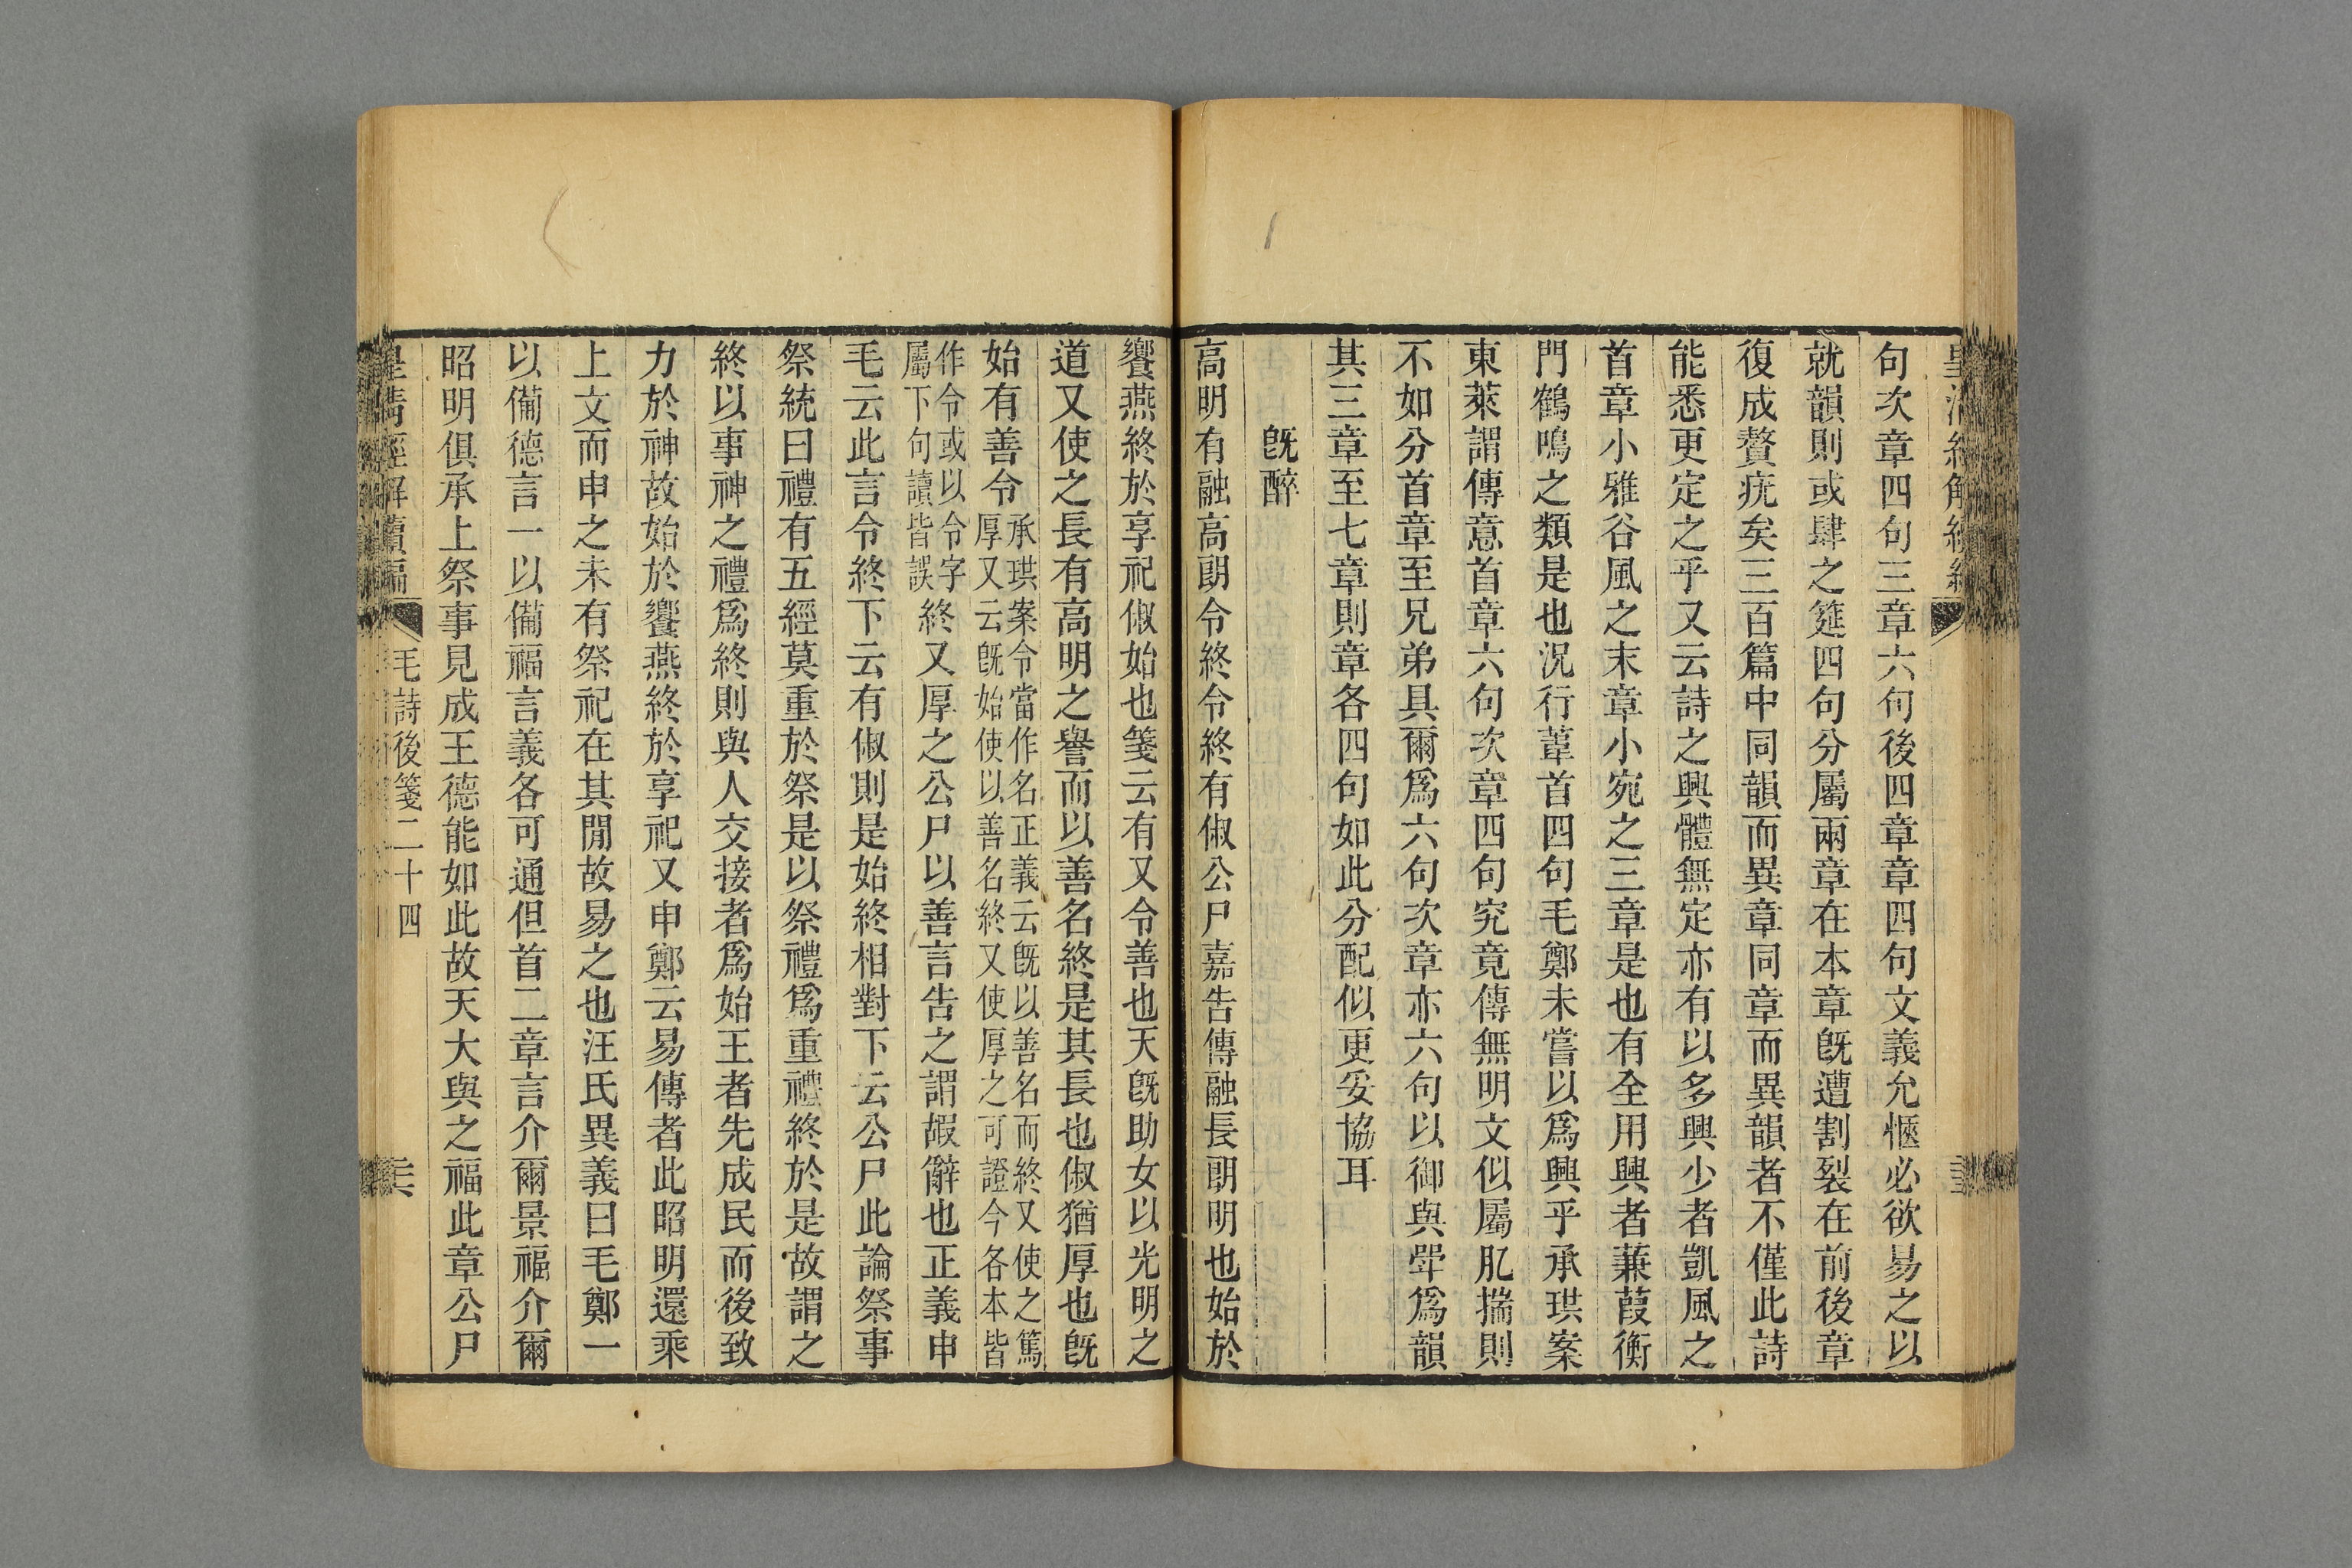 句次章四句三章六句後四章章四句文義允愜必欲易之以
就韻則或肆之筵四句分屬兩章在本章旣遭割裂在前後章
復成贅疣矣三百篇中同韻而異章同章而異韻者不僅此詩
能悉更定之乎又云詩之興體無定亦有以多興少者凱風之
首章小雅谷風之末章小宛之三章是也有全用興者蒹葭衡
門鶴鳴之類是也況行葦首四句毛鄭未嘗以爲興乎承珙案
東萊謂傳意首章六句次章四句究竟傳無明文似屬肊揣則
不如分首章至兄弟具爾爲六句次章亦六句以御與斝爲韻
其三章至七章則章各四句如此分配似更妥協耳
旣醉
高明有融高朗令終令終有俶公尸嘉告傳融長朗明也始於
饗燕終於享祀俶始也箋云有又令善也天旣助女以光明之
道又使之長有高明之譽而以善名終是其長也俶猶厚也旣
始有善令承珙案令當作名正義云旣以善名而終又使之篤
厚又云旣始使以善名終又使厚之可證今各本皆
作令或以令字
屬下句讀皆誤終又厚之公尸以善言告之謂嘏辭也正義申
毛云此言令終下云有俶則是始終相對下云公尸此論祭事
祭統曰禮有五經莫重於祭是以祭禮爲重禮終於是故謂之
終以事神之禮爲終則與人交接者爲始王者先成民而後致
力於神故始於饗燕終於享祀又申鄭云易傳者此昭明還乘
上文而申之未有祭祀在其閒故易之也汪氏異義曰毛鄭一
以備德言一以備福言義各可通但首二章言介爾景福介爾
昭明俱承上祭事見成王德能如此故天大與之福此章公尸
皇清經解續編 毛詩後箋二十四